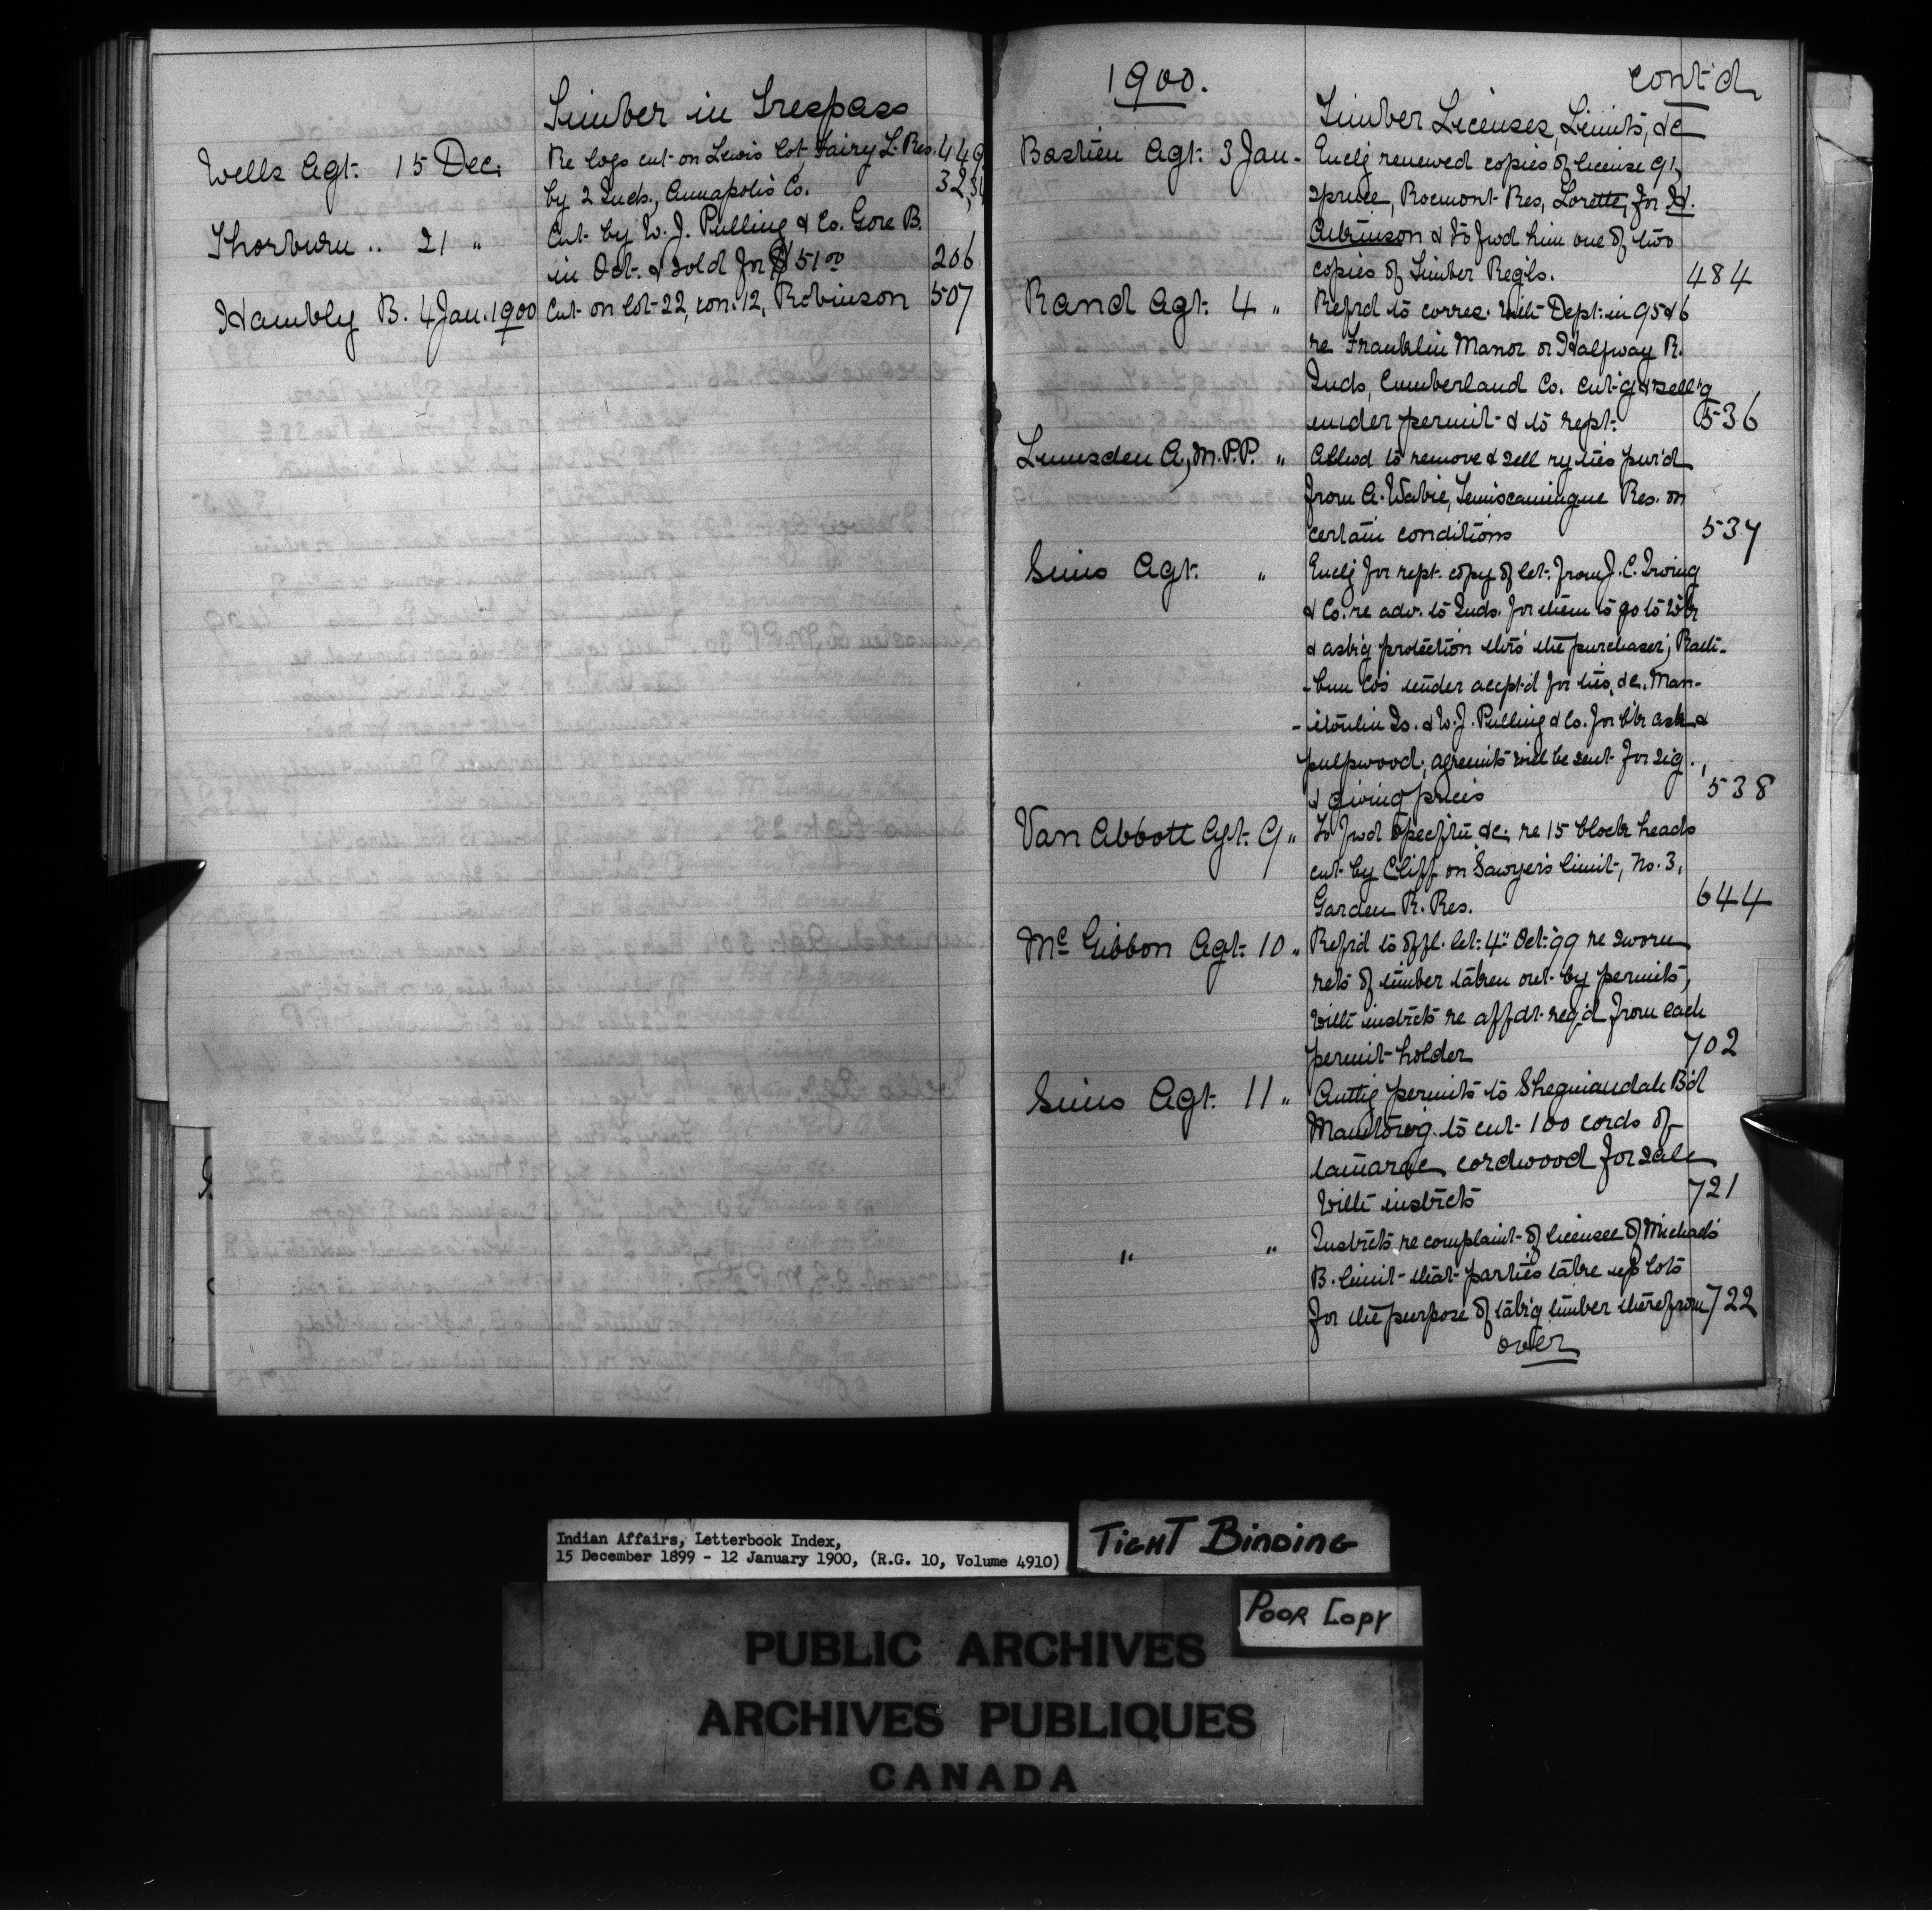 Timber in Trespass
Wells Agt. 15 Dec. Re logs cut on Lewis lot, Fairy L. Res. 449
by 2 Inds., Annapolis Co. 32,
Thorburn " 21 " Cut by W. J. Pulling & Co. Gore B.
in Oct. & sold for $51.00 206
Hambly B. 4 Jan. 1900 Cut on lot 22, con. 12, Robinson 507
1900. cont'd
Timber Licenses, Limits, &c
Bastien Agt. 3 Jan. Enclg renewed copies of license 91,
spruce, Rocmont Res, Lorette, for H.
Atkinson & to fwd him one of two
copies of Timber Regls. 484
Rand Agt. 4 " Refrd to corres. with Dept. in 95 & 6
re Franklin Manor or Halfway R.
Inds, Cumberland Co. cut'g & sell'g
under permit & to rept. 536
Lumsden A, M.P.P. " Allwd to remove & sell ry ties pur'd
from A. Wabie, Temiscamingue Res. on
certain conditions 537
Sims Agt. " Enclg for rept. copy of let. from J. C. Irving
& Co. re adv. to Inds. for them to go to wk
& ask'g protection thro' the purchaser; Rath-
-bun Co's tender accpt'd for ties, &c. Man-
-itoulin Is. & W. J. Pulling & Co. for b'k ash &
pulpwood; agreemts will be sent for sig.,
& giving prices 538
Van Abbott Agt. 9 " To fwd &c. re 15 block heads
cut by Cliff on Sawyer's limit, No. 3,
Garden R. Res. 644
McGibbon Agt. 10 " Refrd to offl. let. 4" Oct. 99 re sworn
rets of timber taken out by permits,
with instrcts re affdt req'd from each
permit holder 702
Sims Agt. 11 " Authg permits to Sheguiandah B'd
to cut 100 cords of
tamarac cordwood for sale
with instrcts 721
" " Instrcts re complaint of licensee of Michael's
B. limit that parties take up lots
for the purpose of tak'g timber therefrom 722
over
Indian Affairs, Letterbook Index,
15 December 1899 - 12 January 1900, (R.G. 10, Volume 4910)
TIGHT BINDING
POOR COPY
PUBLIC ARCHIVES
ARCHIVES PUBLIQUES
CANADA